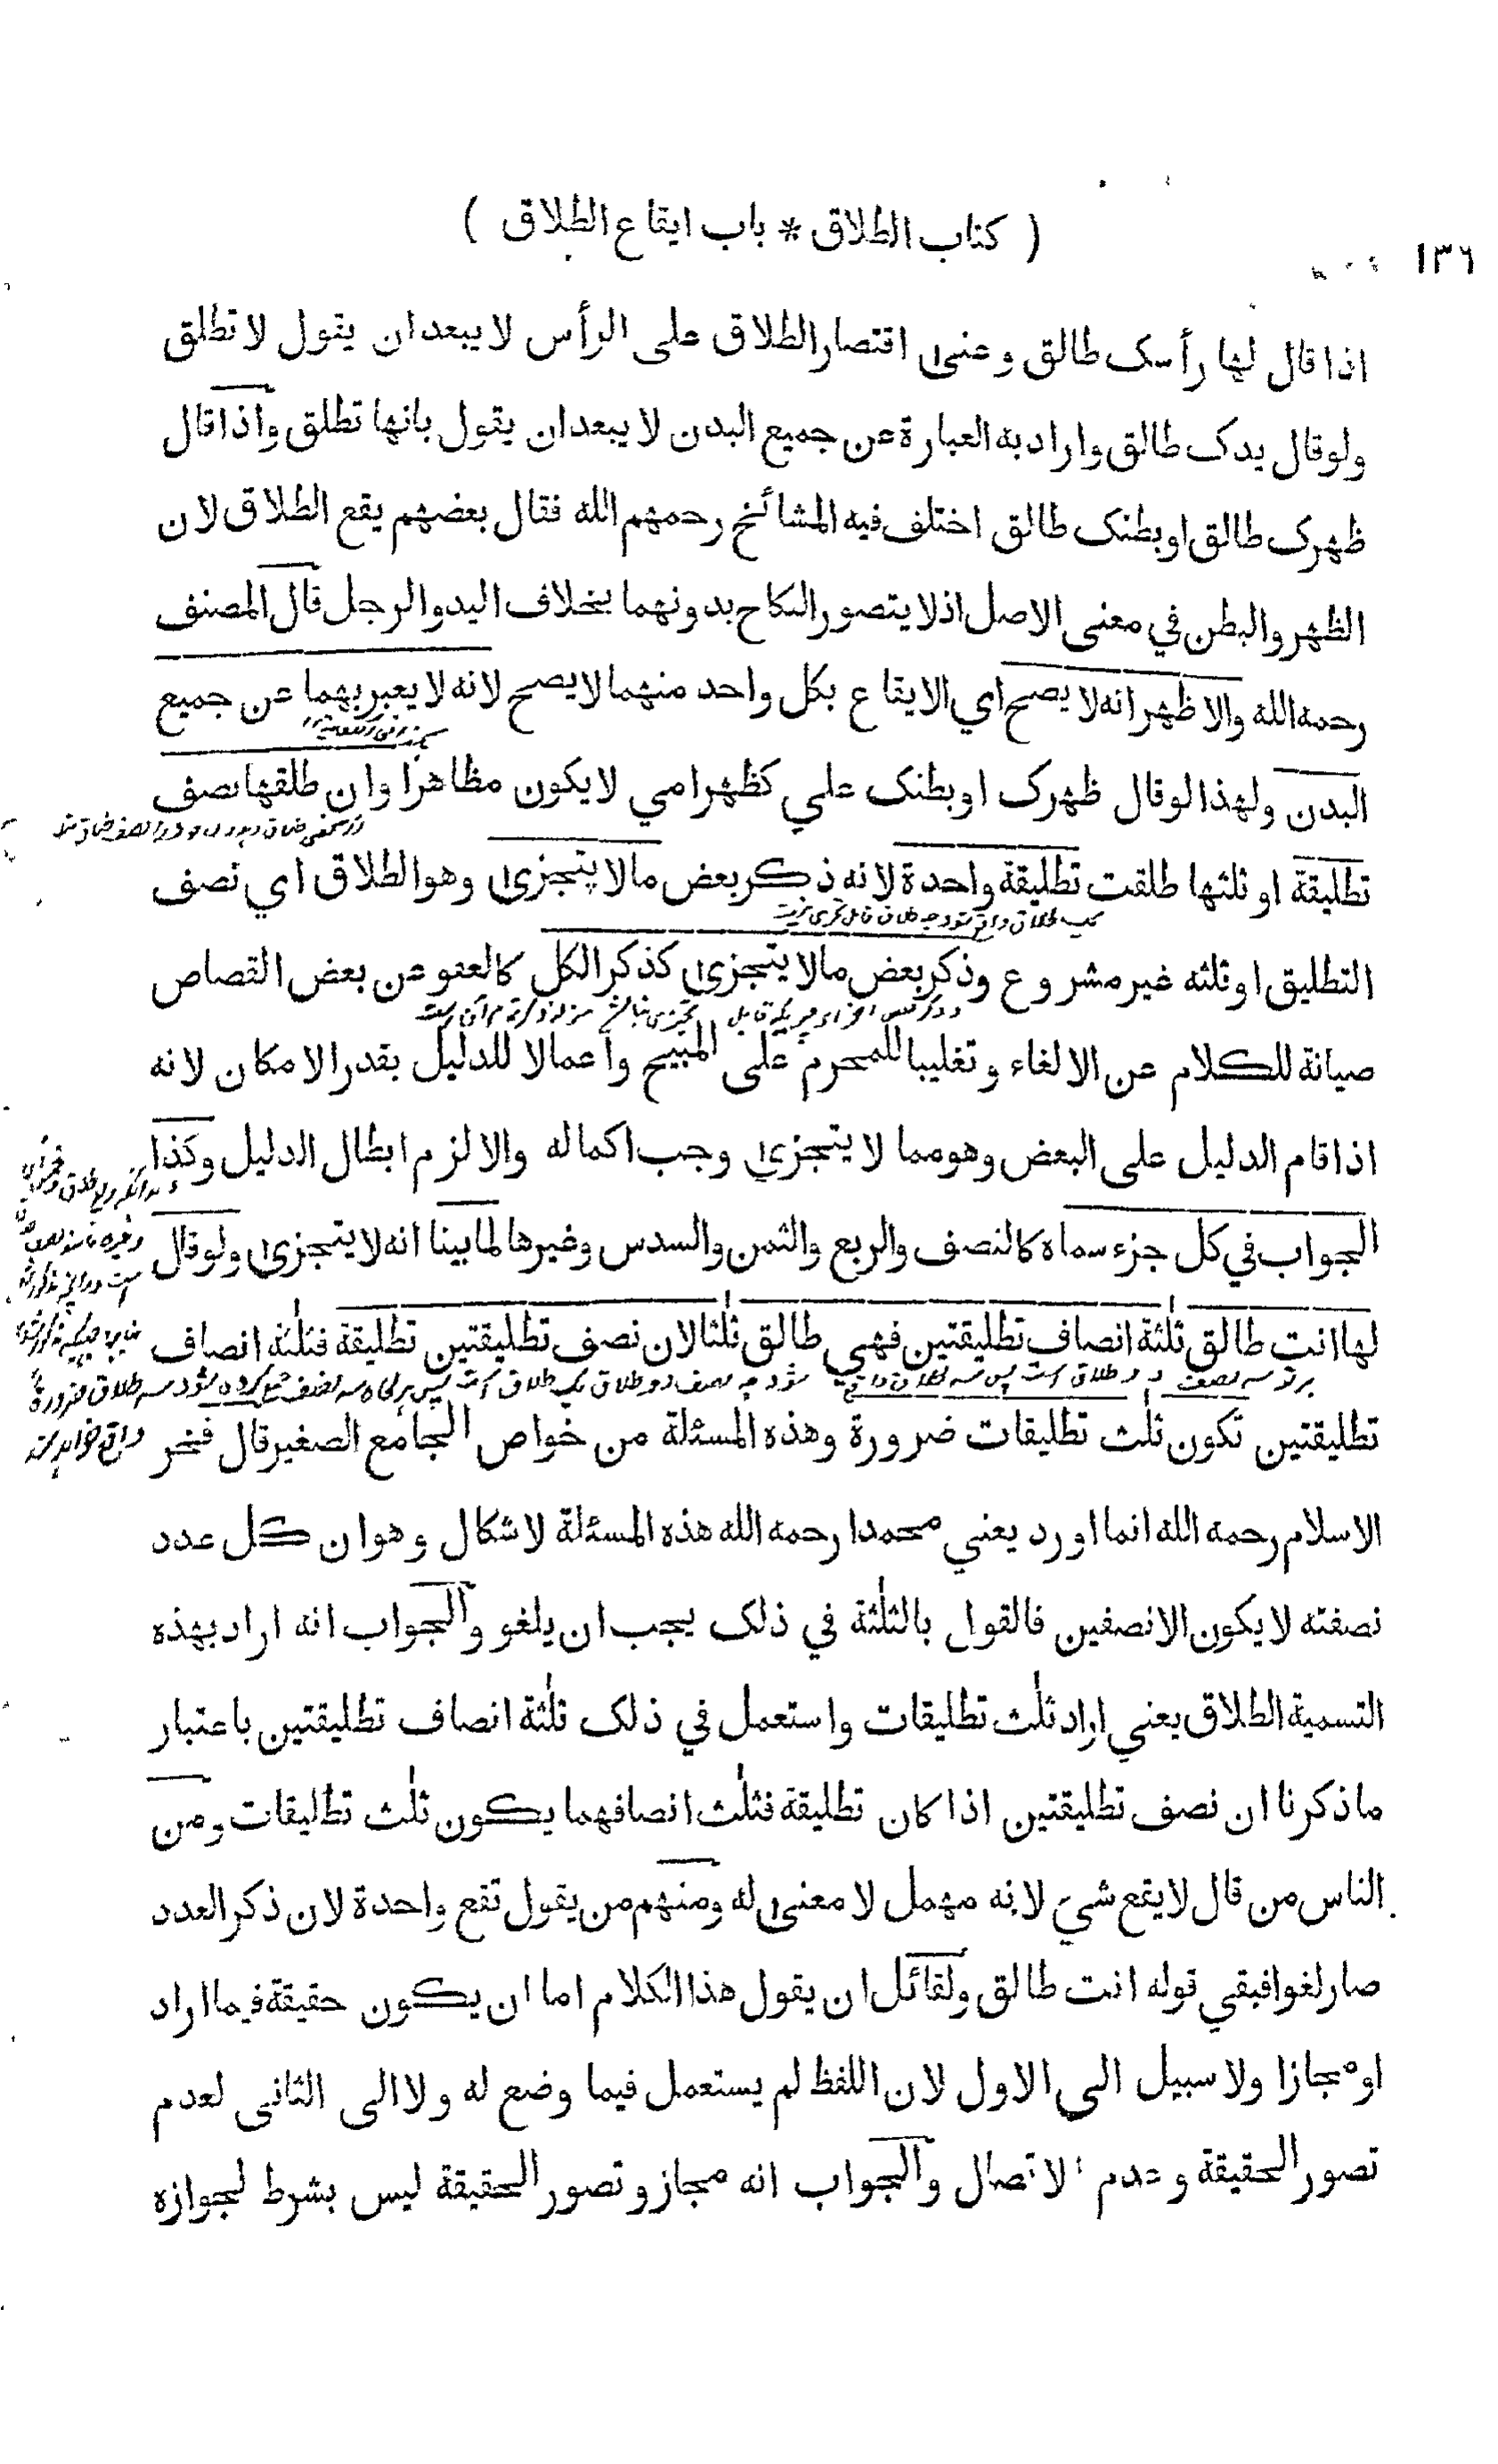 ( كتاب الطلاق * باب ايقاع الطلاق )
١٣٦
اذا قال لها رأسك طالق وعنى اقتصار الطلاق على الرأس لا يبعد ان يقول لا تطلق
ولو قال يدك طالق واراد به العبارة عن جميع البدن لا يبعد ان يقول بانها تطلق واذا قال
ظهرك طالق او بطنك طالق اختلف فيه المشائخ رحمهم الله فقال بعضهم يقع الطلاق لان
الظهر والبطن في معنى الاصل اذ لا يتصور النكاح بدونهما بخلاف اليد والرجل قال المصنف
رحمه الله والاظهر انه لا يصح اي الايقاع بكل واحد منهما لا يصح لانه لا يعبر بهما عن جميع
البدن ولهذا لو قال ظهرك او بطنك علي كظهر امي لا يكون مظاهرا وان طلقها نصف
تطليقة او ثلثها طلقت تطليقة واحدة لانه ذكر بعض مالا يتجزى وهو الطلاق اي نصف
التطليق او ثلثه غير مشروع وذكر بعض مالا يتجزى كذكر الكل كالعفو عن بعض القصاص
صيانة للكلام عن الالغاء وتغليبا للمحرم على المبيح واعمالا للدليل بقدر الامكان لانه
اذا قام الدليل على البعض وهو مما لا يتجزي وجب اكماله والا لزم ابطال الدليل وكذا
الجواب في كل جزء سماه كالنصف والربع والثمن والسدس وغيرها لما بينا انه لا يتجزى ولو قال
لها انت طالق ثلثة انصاف تطليقتين فهي طالق ثلثا لان نصف تطليقتين تطليقة فثلثة انصاف
تطليقتين تكون ثلث تطليقات ضرورة وهذه المسئلة من خواص الجامع الصغير قال فخر
الاسلام رحمه الله انما اورد يعني محمدا رحمه الله هذه المسئلة لاشكال وهو ان كل عدد
نصفته لا يكون الا نصفين فالقول بالثلثة في ذلك يجب ان يلغو والجواب انه اراد بهذه
التسمية الطلاق يعني اراد ثلث تطليقات واستعمل في ذلك ثلثة انصاف تطليقتين باعتبار
ما ذكرنا ان نصف تطليقتين اذا كان تطليقة فثلث انصافهما يكون ثلث تطليقات ومن
الناس من قال لا يقع شيء لانه مهمل لا معنى له ومنهم من يقول تقع واحدة لان ذكر العدد
صار لغوا فبقي قوله انت طالق ولقائل ان يقول هذا الكلام اما ان يكون حقيقة فيما اراد
او مجازا ولا سبيل الى الاول لان اللفظ لم يستعمل فيما وضع له ولا الى الثانى لعدم
تصور الحقيقة وعدم الاتصال والجواب انه مجاز وتصور الحقيقة ليس بشرط لجوازه